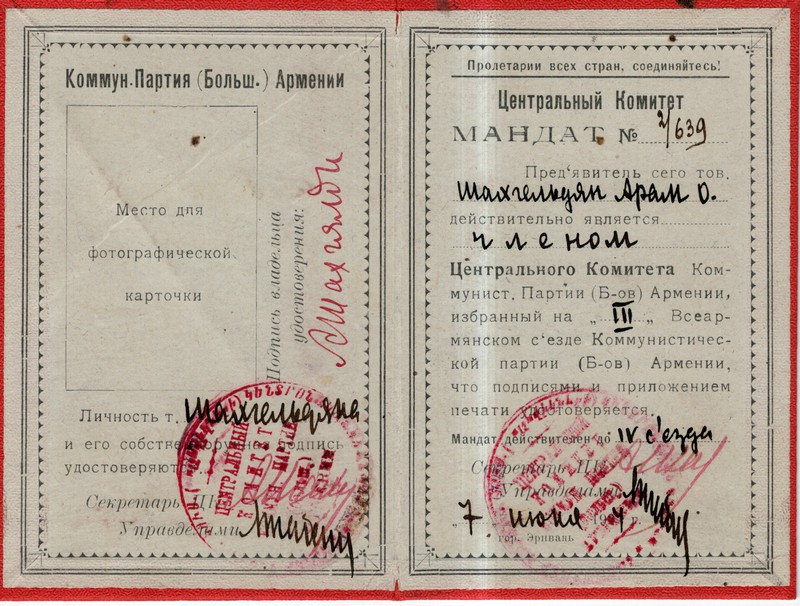 Коммун.Партия (Больш.) Армении
Место для
фотографической
карточки
Подпись владельца
удостоверения:
Личность т. Шахгельдяна
и его собственноручная подпись
удостоверяются
Секретарь ЦК
Управделами
ЦЕНТРАЛЬНЫЙ
Пролетарии всех стран, соединяйтесь!
Центральный Комитет
МАНДАТ № 2/639
Пред'явитель сего тов.
Шахгельдян Арам О.
действительно является
членом
Центрального Комитета Ком-
мунист. Партии (Б-ов) Армении,
избранный на „ III „ Всеар-
мянском с'езде Коммунистичес-
кой партии (Б-ов) Армении,
что подписями и приложением
печати удостоверяется.
Мандат действителен до IV с'езда
Секретарь ЦК
Управделами
„ 7 июня 192 г.
гор. Эривань